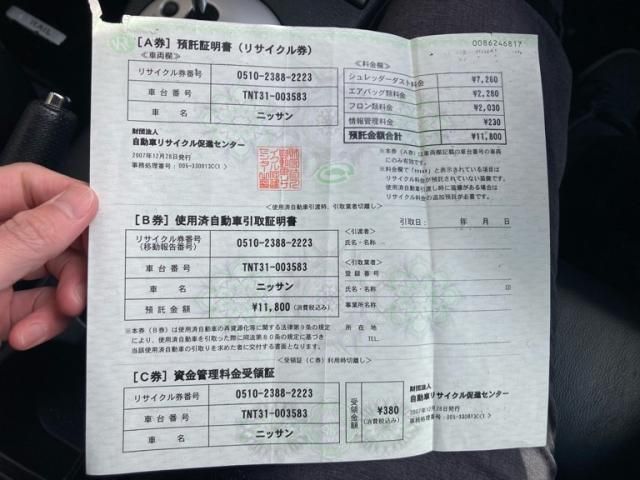 RAIL
0086246817
[A券] 預託証明書 (リサイクル券)
《車両欄》
リサイクル券番号 0510-2388-2223
車台番号 TNT31-003583
車名 ニッサン
財団法人
自動車リサイクル促進センター
2007年12月28日発行
事務処理番号:005-330813C(1)
《料金欄》
シュレッダーダスト料金 ¥7,260
エアバッグ類料金 ¥2,280
フロン類料金 ¥2,030
情報管理料金 ¥230
預託金額合計 ¥11,800
※本券(A券)は車両欄記載の車台番号の車両
にのみ有効です。
リサイクル料金が預託されていない装備です。
使用済自動車引渡し時に装備がある場合は
リサイクル料金の追加預託が必要です。
<使用済自動車引渡時、引取業者切離し>
[B券] 使用済自動車引取証明書
引取日: 年 月 日
リサイクル券番号
(移動報告番号) 0510-2388-2223
車台番号 TNT31-003583
車名 ニッサン
預託金額 ¥11,800 (消費税込み)
<引渡者>
氏名・名称
<引取業者>
登録番号
氏名・名称 印
事業所名称
所在地
TEL.
※本券(B券)は使用済自動車の再資源化等に関する法律第9条の規定
により、使用済自動車を引取った際に同法第80条の規定に基づき
当該使用済自動車の引取りを求めた者に交付する書面となります。
<受領証(C券)利用時切離し>
[C券] 資金管理料金受領証
リサイクル券番号 0510-2388-2223
車台番号 TNT31-003583
車名 ニッサン
受領金額 ¥380
(消費税込み)
財団法人
自動車リサイクル促進センター
2007年12月28日発行
事務処理番号:005-330813C(1)